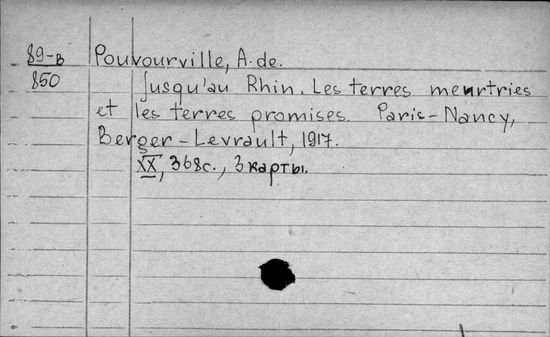 89-B Pouvourville, A. de.
850 Jusqu'au Rhin. Les terres meurtries
et les terres promises. Paris-Nancy,
Berger-Levrault, 1917.
XX, 368c., 3 карты.